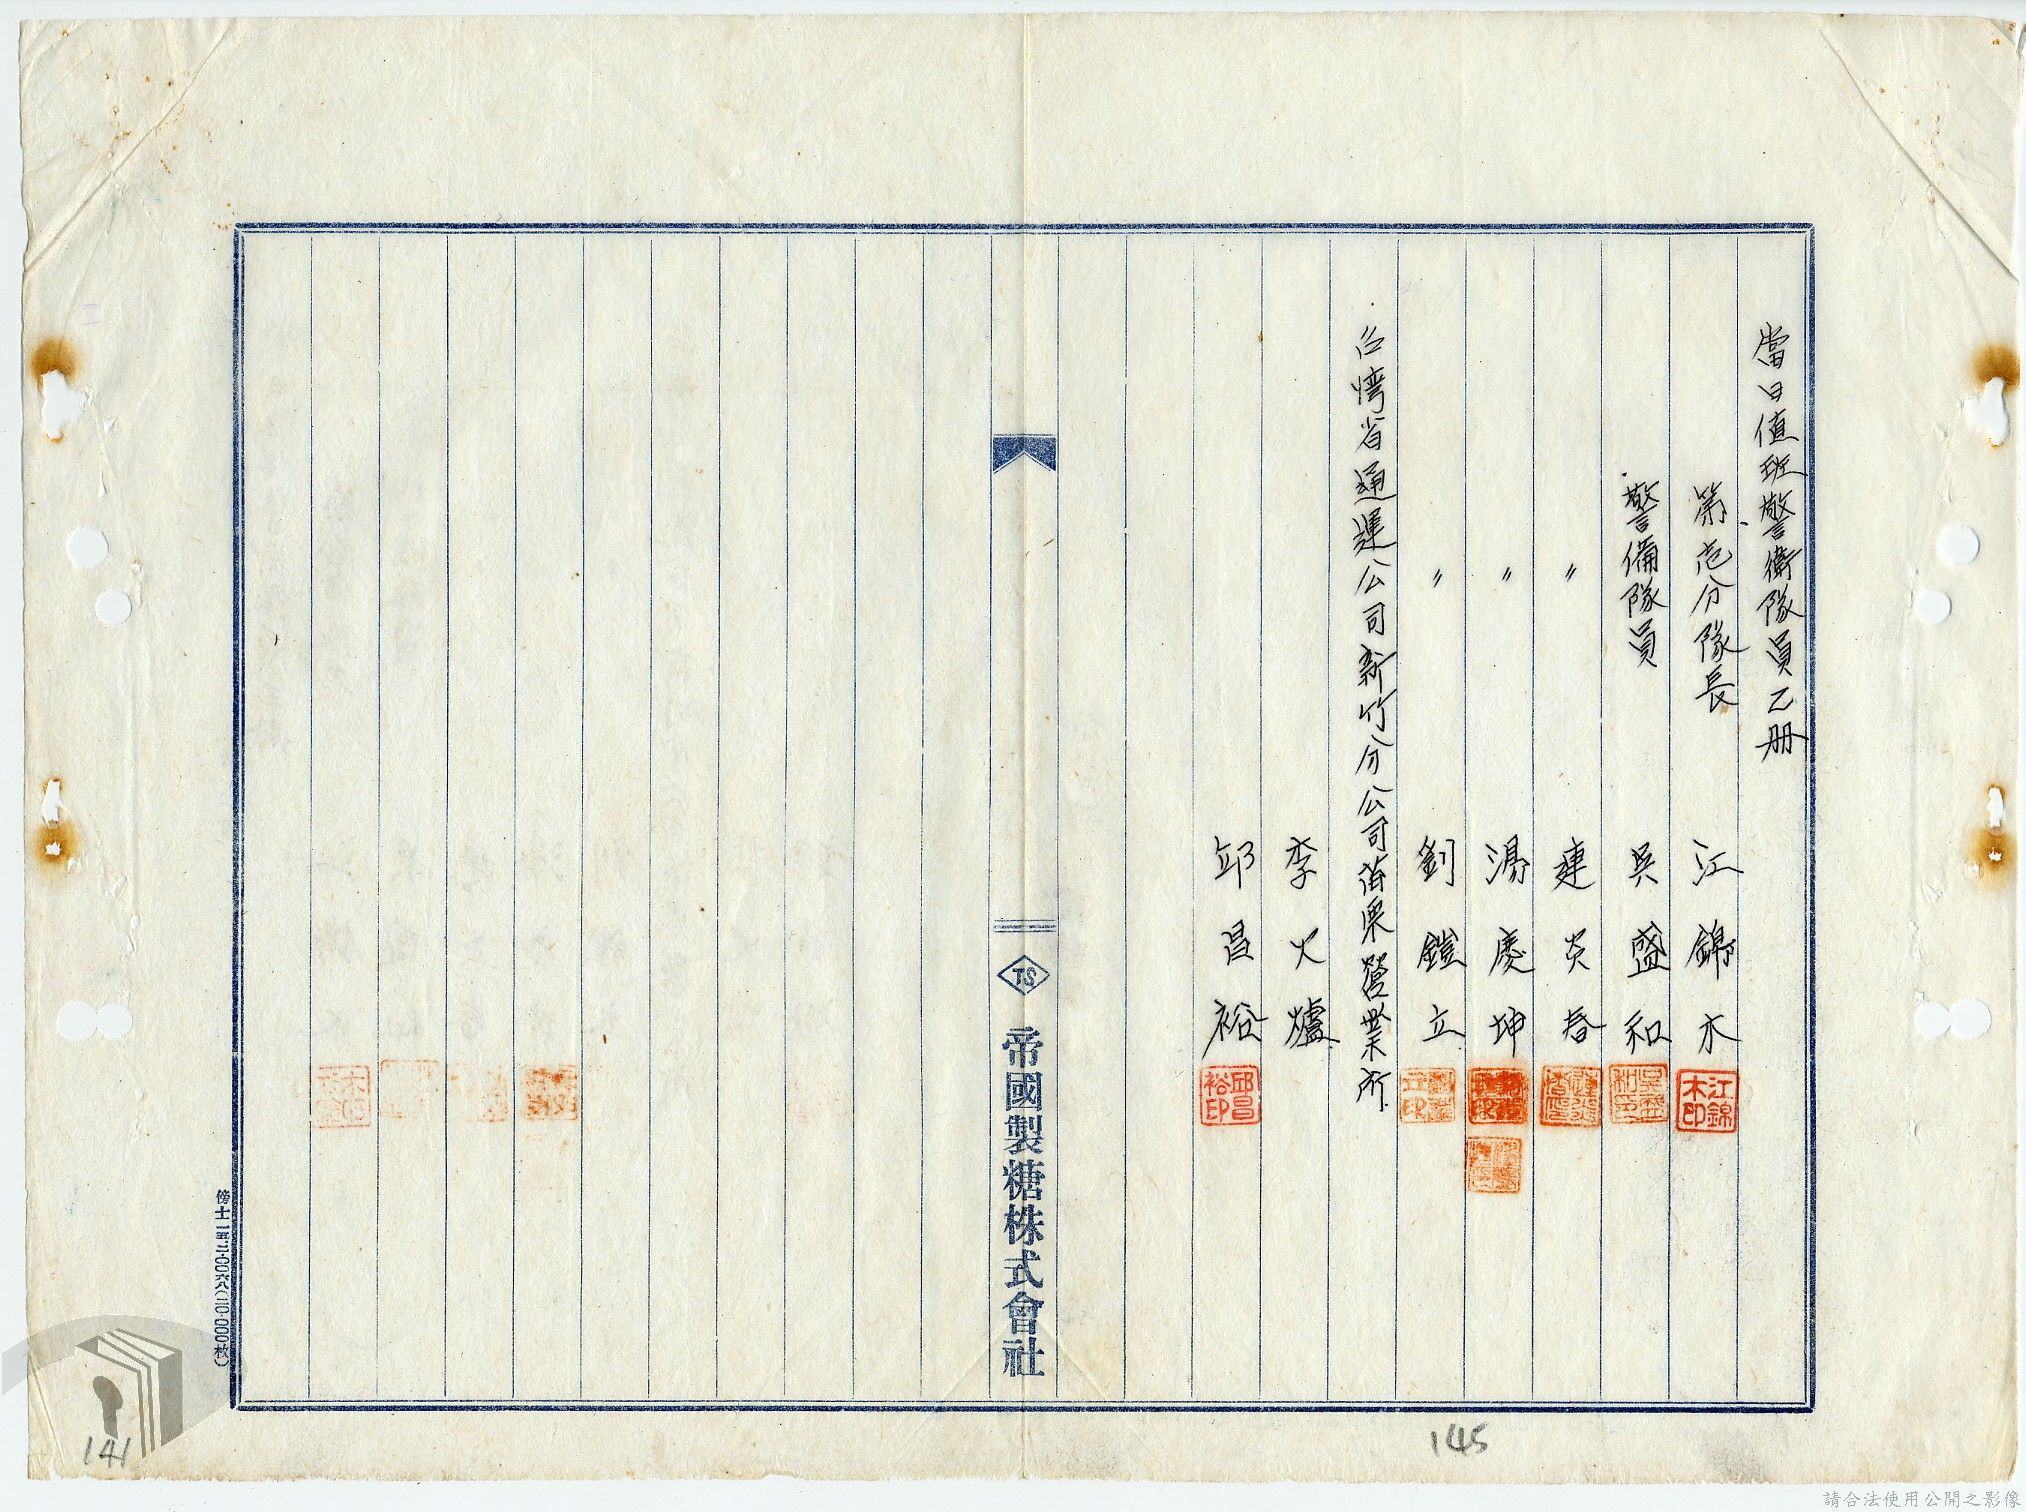 當日值班警衛隊員乙册
第壱分隊長 江錦木 江錦木印
警備隊員 吳盛和
〃 連炎春
〃 湯慶坤
〃 劉鎧立
台湾省通運公司新竹分公司苗栗營業所
李火爐
邱昌裕 邱昌裕印
TS 帝國製糖株式會社
145
141
請合法使用公開之影像